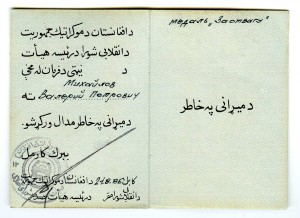 د افغانستان د موکراتیک جمهوریت
د انقلابي شورا د رئیسه هیأت
د نیټې د فرمان له مخې
Михайлов
Валерий Петрович ته
د میړانې په خاطر مدال ورکړ شو.
ببرک کارمل
کابل
د افغانستان د موکراتیک جمهوریت
د انقلابي شورا د رئیسه هیأت
медаль "За отвагу"
د میړانې په خاطر